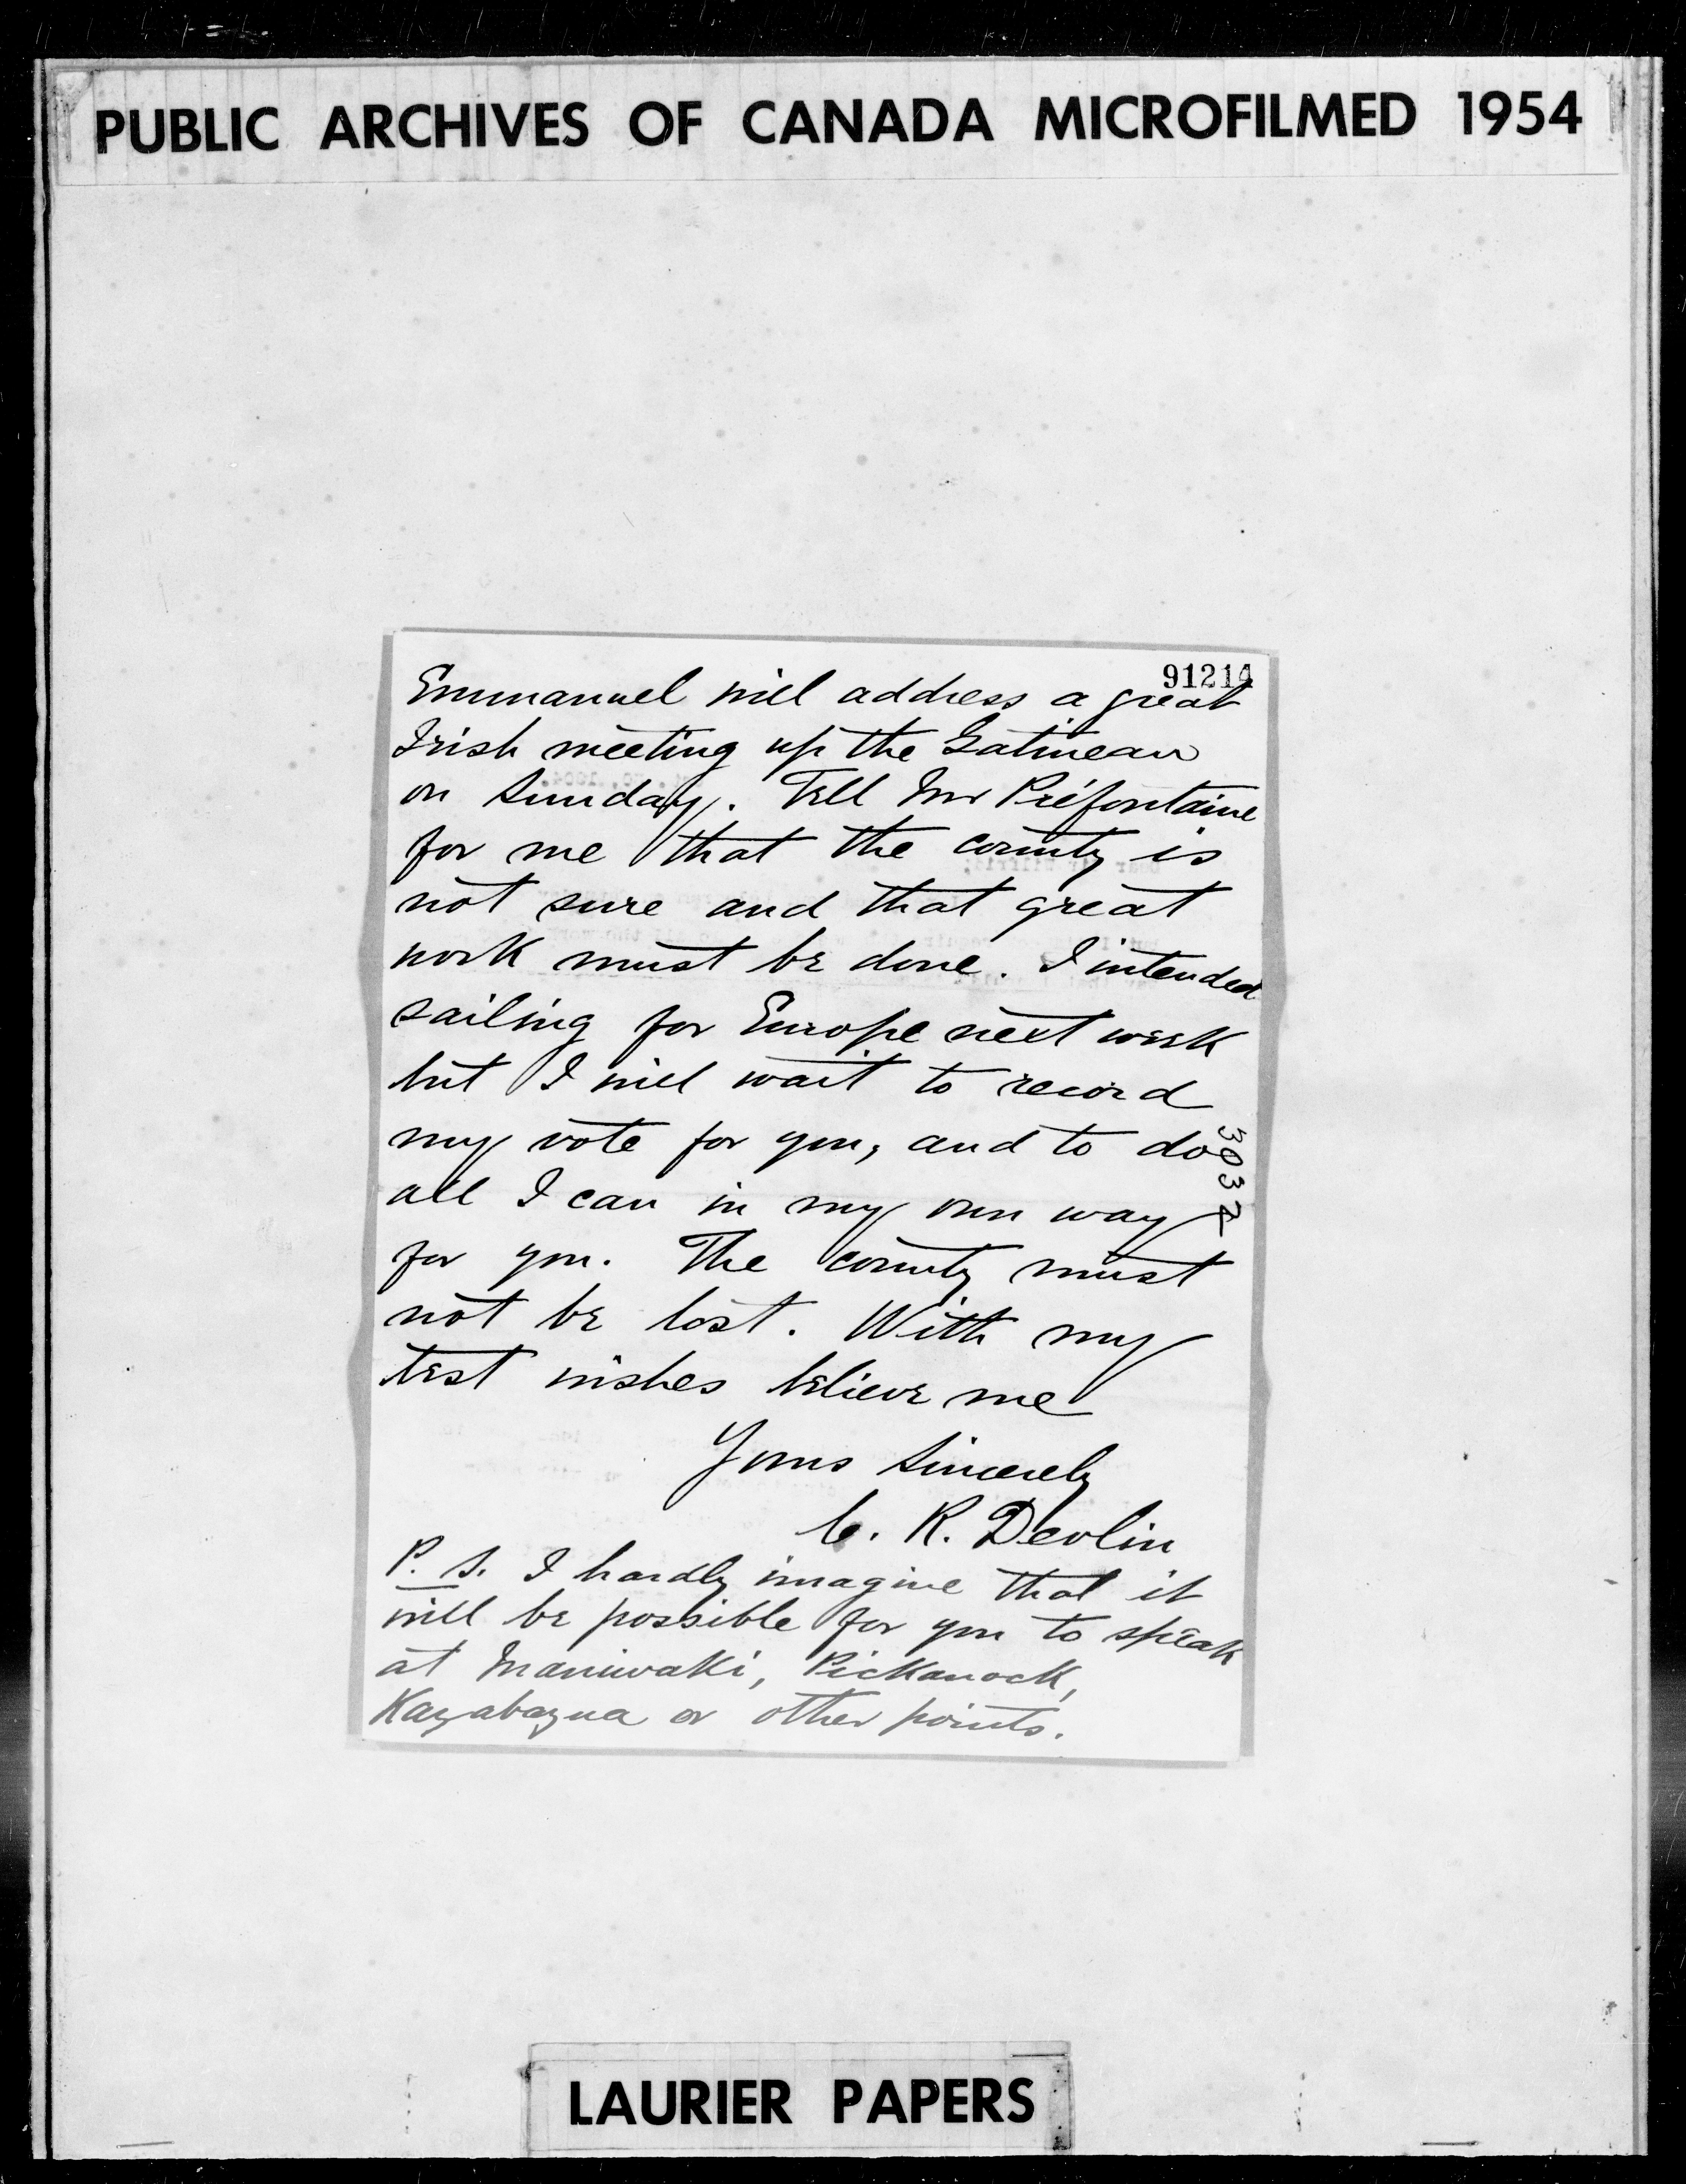 PUBLIC ARCHIVES OF CANADA MICROFILMED 1954
91214
Emmanuel will address a great
Irish meeting up the Gatineau
on Sunday. Tell Mr Préfontaine
for me that the county is
not sure and that great
work must be done. I intended
sailing for Europe next week
but I will wait to record
my vote for you, and to do
3032
all I can in my own way
for you. The county must
not be lost. With my
best wishes believe me
Yours Sincerely
C. R. Devlin
P. S. I hardly imagine that it
will be possible for you to speak
at Maniwaki, Pickanock,
Kazabazua or other points.
LAURIER PAPERS